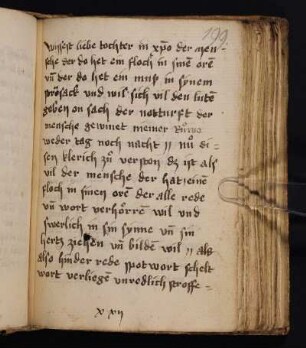 199
Wissest liebe tochter in xp̄o der men
sche der do het ein floch in sinē orē
vn̄ der do het ein muß in synem
prosack und wil sich vil den lutē
geben on sach der notturft der
mensche gewinet meiner Ruwe
weder tag noch nacht // nu di
sen klerich zu verston dz ist als
vil der mensche der hat eine
floch in sinen orē der alle rede
vn̄ wort verhörre wil und
swerlich in sin synne vn̄ sin
hertz ziehen vn̄ bilden wil // als
also hinder rede spotwort schelt
wort verliegen unredlich stroffe-
xxij